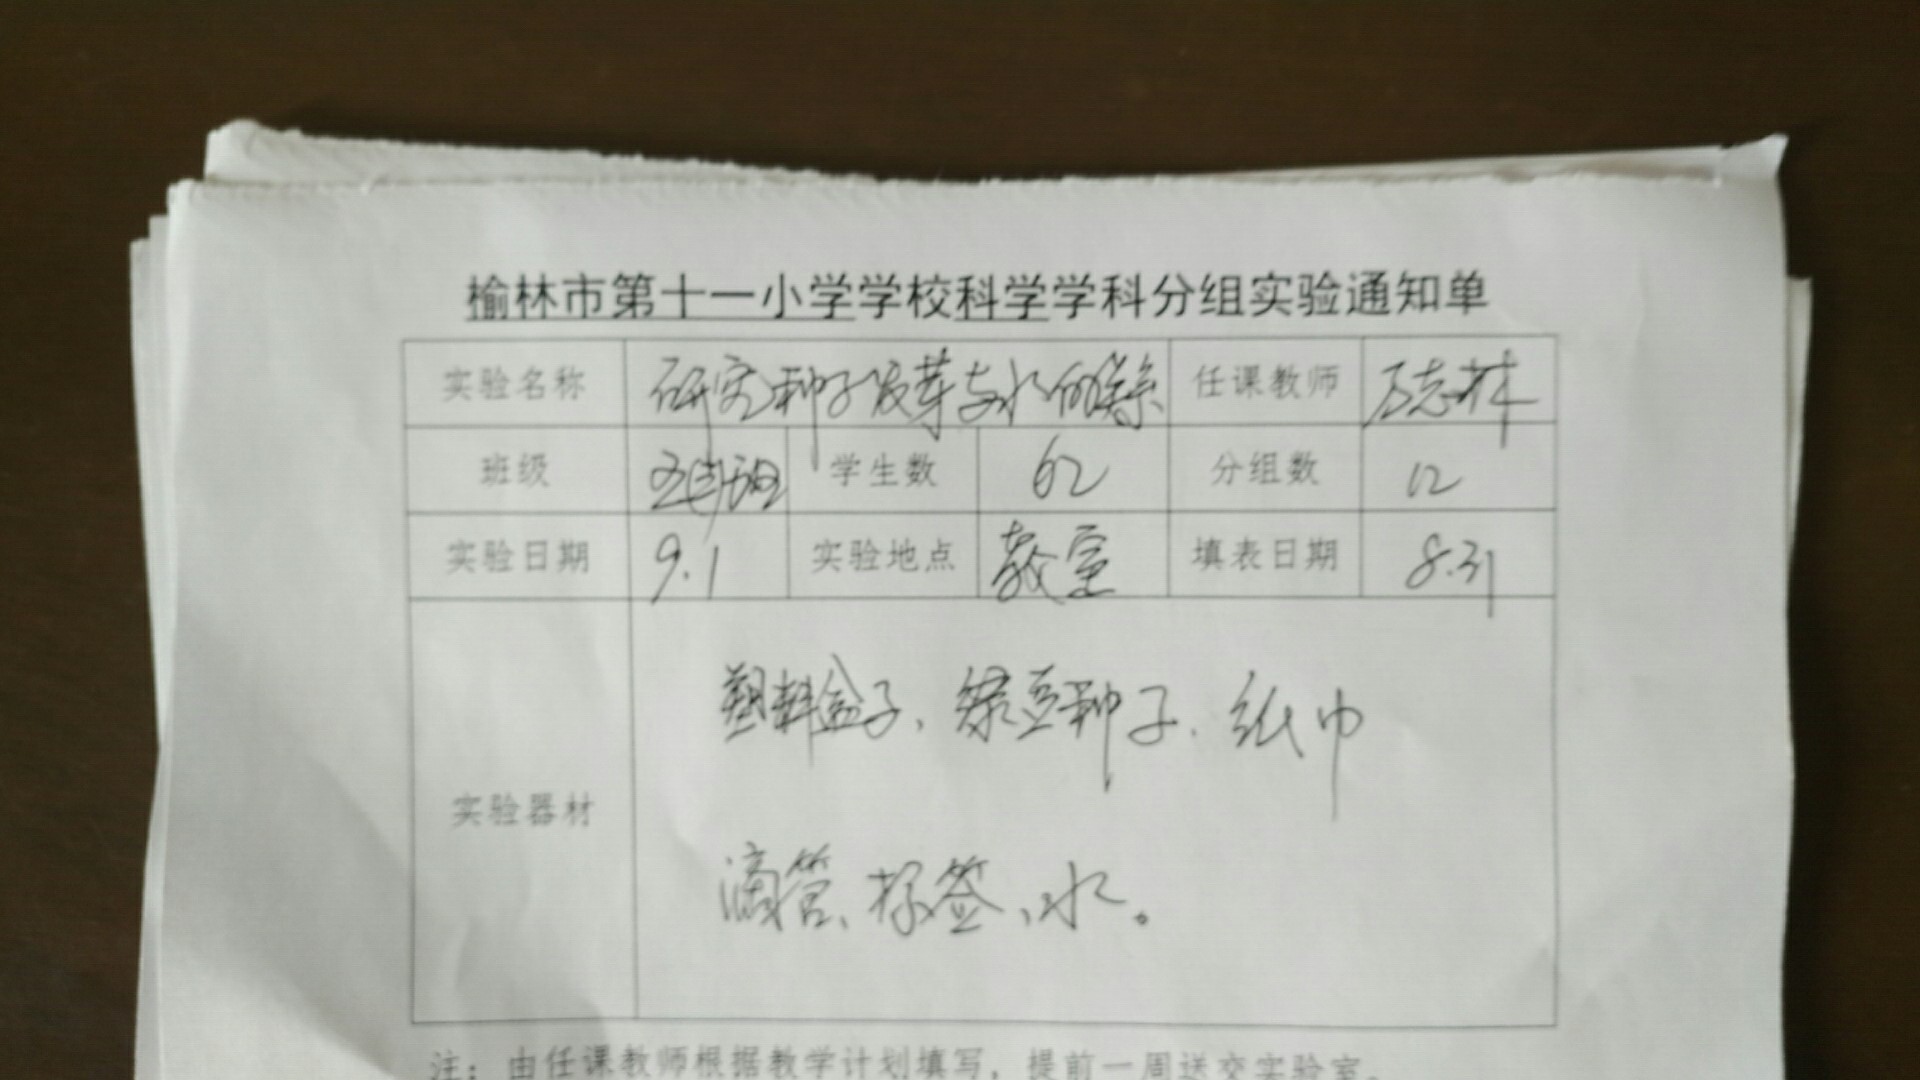 榆林市第十一小学学校科学学科分组实验通知单
实验名称 研究种子发芽与水的关系 任课教师 万志林
班级 学生数 62 分组数 12
实验日期 9.1 实验地点 教室 填表日期 8.31
实验器材 塑料盒子、绿豆种子、纸巾
滴管、标签、水。
注：由任课教师根据教学计划填写，提前一周送交实验室。